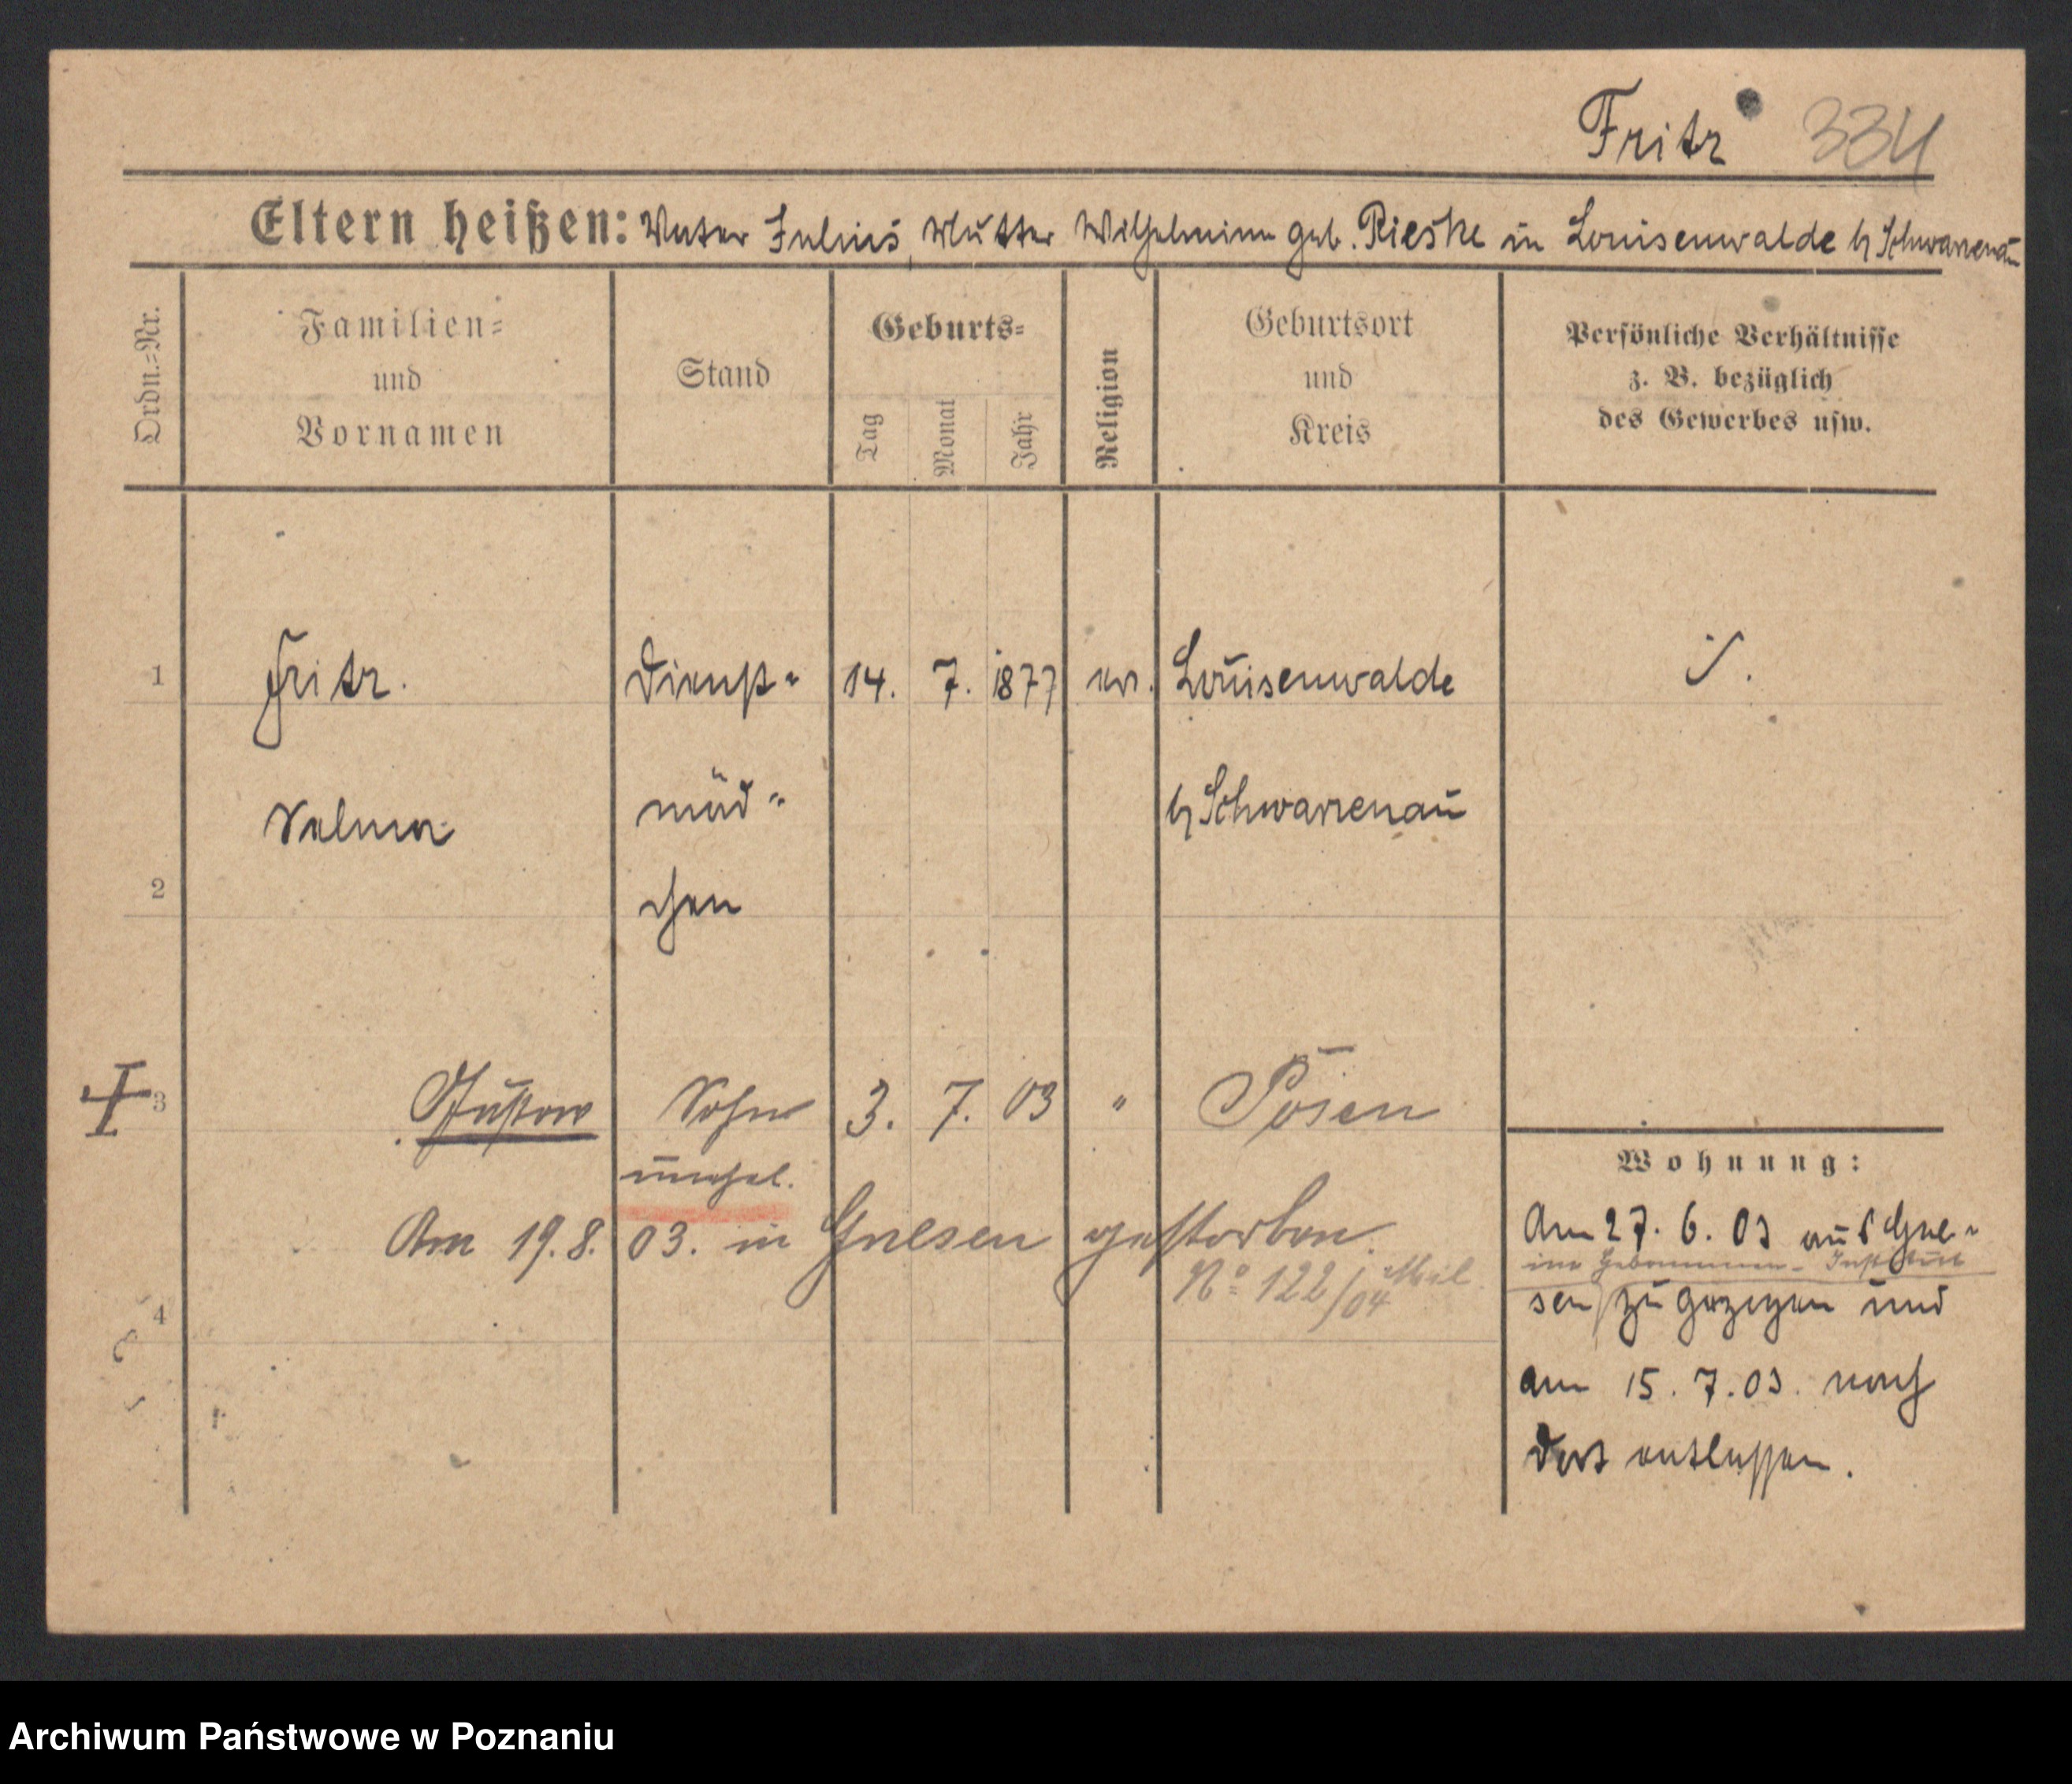 Fritz 334
Eltern heißen: Vater Julius, Mutter Wilhelmine geb. Rieske in Louisenwalde b/ Schwarzenau
Ordn.-Nr.
Familien-
und
Vornamen
Stand
Geburts-
Tag
Monat
Jahr
Religion
Geburtsort
und
Kreis
Persönliche Verhältnisse
z. B. bezüglich
des Gewerbes usw.
1 Fritz. Dienst- 14. 7. 1877 ev. Louisenwalde
Selma mäd- b/ Schwarzenau
2 chen
3 Gustav Sohn 3. 7. 03 " Posen
unehel.
Am 19.8.03. in Gnesen gestorben.
No 122/04
4
Wohnung:
Am 27. 6. 03 aus Gne-
im Hebammen-Institut
sen zu gezogen und
am 15. 7. 03. nach
dort entlassen.
Archiwum Państwowe w Poznaniu